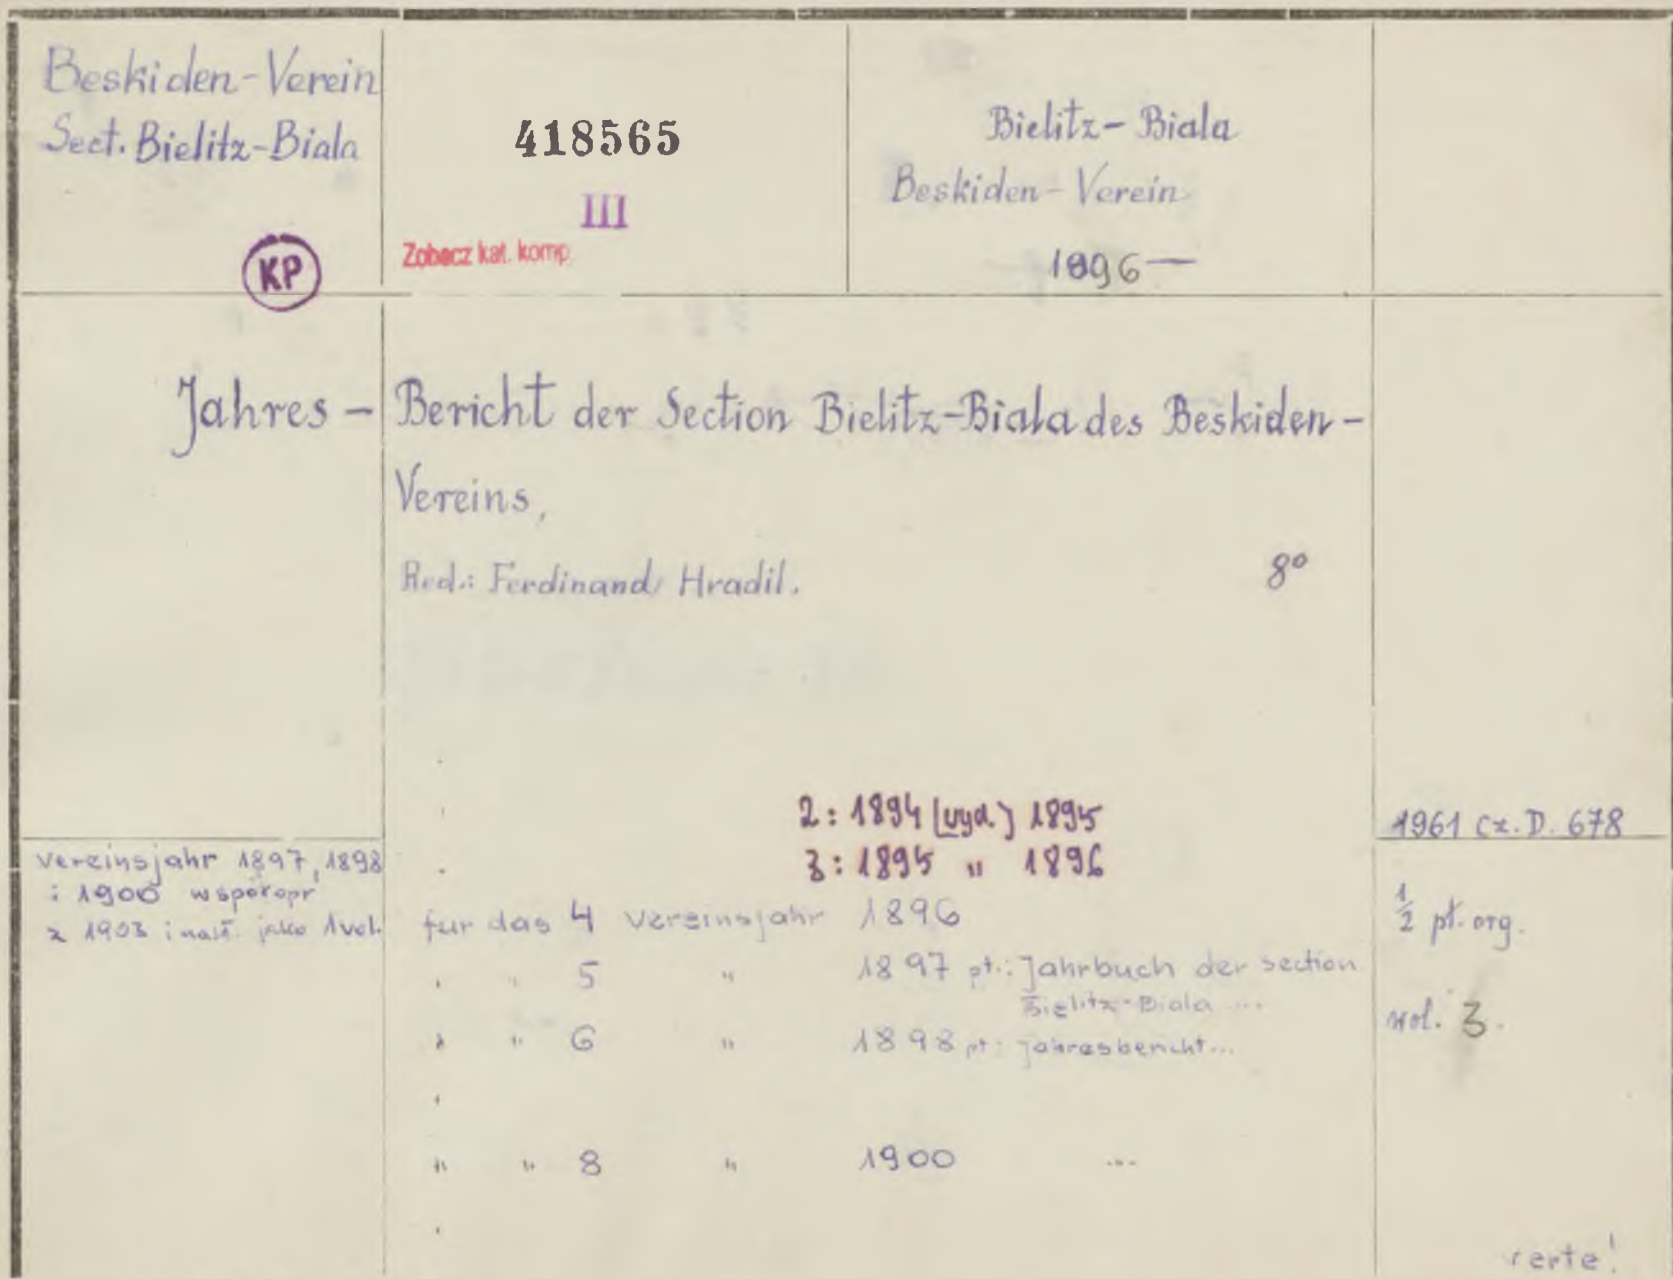 Beskiden-Verein
Sect. Bielitz-Biala
KP
418565
III
Zobacz kat. komp.
Bielitz-Biala
Beskiden-Verein
1896—
Jahres-Bericht der Section Bielitz-Biala des Beskiden-
Vereins,
Red.: Ferdinand Hradil.
8°
2: 1894 [wyd.] 1895
3: 1895 " 1896
1961 cz. D. 678
Vereinsjahr 1897, 1898
i 1900 współopr
z 1903 i nast. jako 1 vol.
für das 4 Vereinsjahr 1896
" " 5 " 1897 pt.: Jahrbuch der section
Bielitz-Biala ...
" " 6 " 1898 pt: Jahresbericht...
" " 8 " 1900 ...
1/2 pł. org.
vol. 3.
verte!